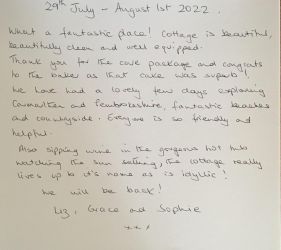 29th July - August 1st 2022.
What a fantastic place! Cottage is beautiful,
beautifully clean and well equipped.
Thank you for the care package and congrats
to the baker as that cake was superb!
We have had a lovely few days exploring
Carmarthen and Pembrokeshire, fantastic beaches
and countryside. Everyone is so friendly and
helpful.
Also sipping wine in the gorgeous hot tub
watching the sun setting, the cottage really
lives up to it's name as idyllic!
We will be back!
Liz, Grace and Sophie
x x x